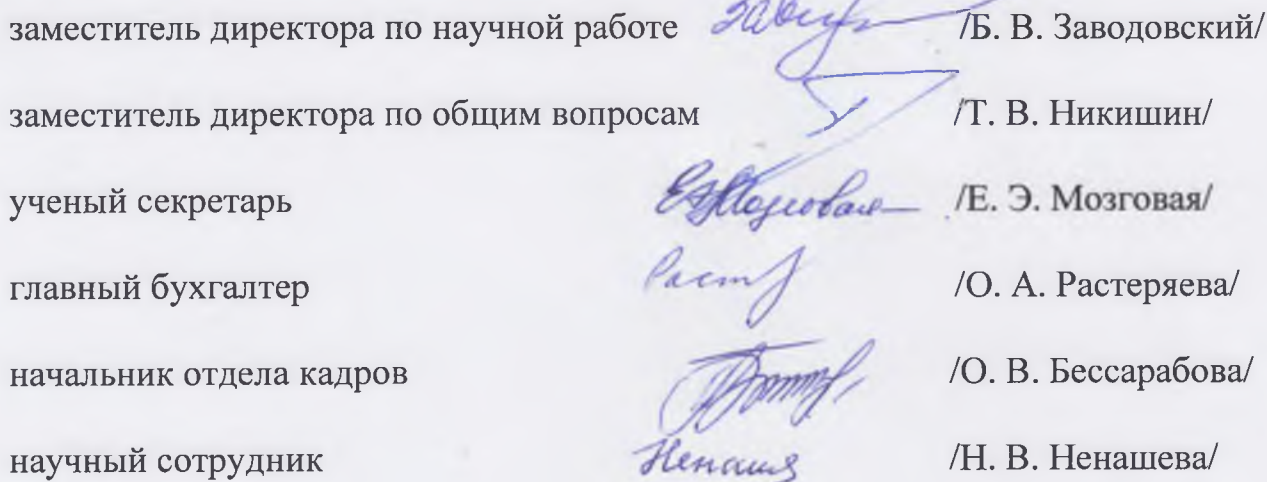 заместитель директора по научной работе /Б. В. Заводовский/
заместитель директора по общим вопросам /Т. В. Никишин/
ученый секретарь ЕЭМозговая /Е. Э. Мозговая/
главный бухгалтер Раст /О. А. Растеряева/
начальник отдела кадров /О. В. Бессарабова/
научный сотрудник Ненаш /Н. В. Ненашева/